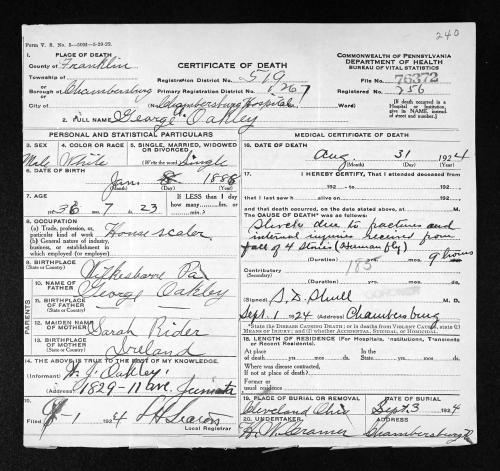 240
Form V. S. No. 5
1. PLACE OF DEATH
County of Franklin
Township of
or
Borough of Chambersburg
or
City of
CERTIFICATE OF DEATH
Registration District No. 519
Primary Registration District No.
(No. Chambersburg Hospital
Ward)
COMMONWEALTH OF PENNSYLVANIA
DEPARTMENT OF HEALTH
BUREAU OF VITAL STATISTICS
File No. 76372
Registered No. 256
(If death occurred in a Hospital or Institution, give its NAME instead of street and number.)
2. FULL NAME George Oakley
PERSONAL AND STATISTICAL PARTICULARS
3. SEX Male
4. COLOR OR RACE White
5. SINGLE, MARRIED, WIDOWED OR DIVORCED
(Write the word) Single
6. DATE OF BIRTH
Jan. 8 1888
(Month) (Day) (Year)
7. AGE
36 yrs. 7 mos. 23 ds.
If LESS than 1 day how many hrs. or min.?
8. OCCUPATION
(a) Trade, profession, or particular kind of work House scaler
(b) General nature of industry, business, or establishment in which employed (or employer)
9. BIRTHPLACE
(State or Country) Wilkesbarre Pa
PARENTS
10. NAME OF FATHER George Oakley
11. BIRTHPLACE OF FATHER
(State or Country)
12. MAIDEN NAME OF MOTHER Sarah Rider
13. BIRTHPLACE OF MOTHER
(State or Country) Ireland
14. THE ABOVE IS TRUE TO THE BEST OF MY KNOWLEDGE.
(Informant) W. J. Oakley
1829-11 ave. Juniata
15.
9-1 1924
Local Registrar
MEDICAL CERTIFICATE OF DEATH
16. DATE OF DEATH
Aug 31 1924
(Month) (Day) (Year)
17. I HEREBY CERTIFY, That I attended deceased from
192 , to 192
that I last saw h alive on 192
and that death occurred, on the date stated above, at M.
The CAUSE OF DEATH* was as follows:
Shock due to fractures and
internal injuries received from
fall of 4 stories (Human fly)
(Duration) yrs. mos. 9 hours
185
Contributory
(Secondary)
(Duration) yrs. mos. ds.
(Signed) S. D. Shull M. D.
Sept. 1 1924 (Address) Chambersburg
*State the DISEASE CAUSING DEATH; or in deaths from VIOLENT CAUSES, state (1) MEANS OF INJURY; and (2) whether ACCIDENTAL, SUICIDAL, OR HOMICIDAL.
18. LENGTH OF RESIDENCE (For Hospitals, Institutions, Transients or Recent Residents).
At place of death yrs. mos. ds. In the State yrs. mos. ds.
Where was disease contracted, if not at place of death?
Former or usual residence
19. PLACE OF BURIAL OR REMOVAL
Cleveland Ohio
DATE OF BURIAL
Sept. 3 1924
20. UNDERTAKER
H. W. Cramer
ADDRESS
Chambersburg Pa